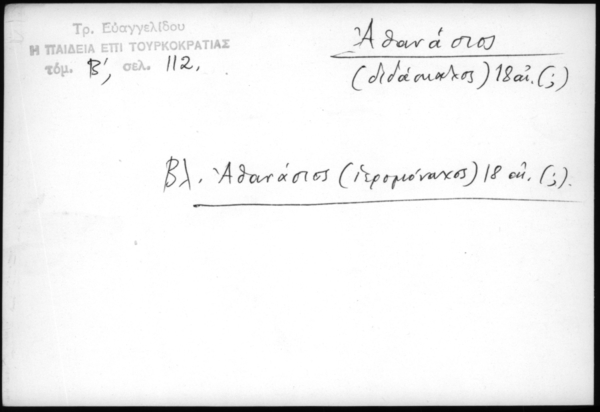 Τρ. Εὐαγγελίδου
Η ΠΑΙΔΕΙΑ ΕΠΙ ΤΟΥΡΚΟΚΡΑΤΙΑΣ
τόμ. Β', σελ. 112.
Ἀθανάσιος
(διδάσκαλος) 18 αἰ. (;)
Βλ. Ἀθανάσιος (ἱερομόναχος) 18 αἰ. (;).